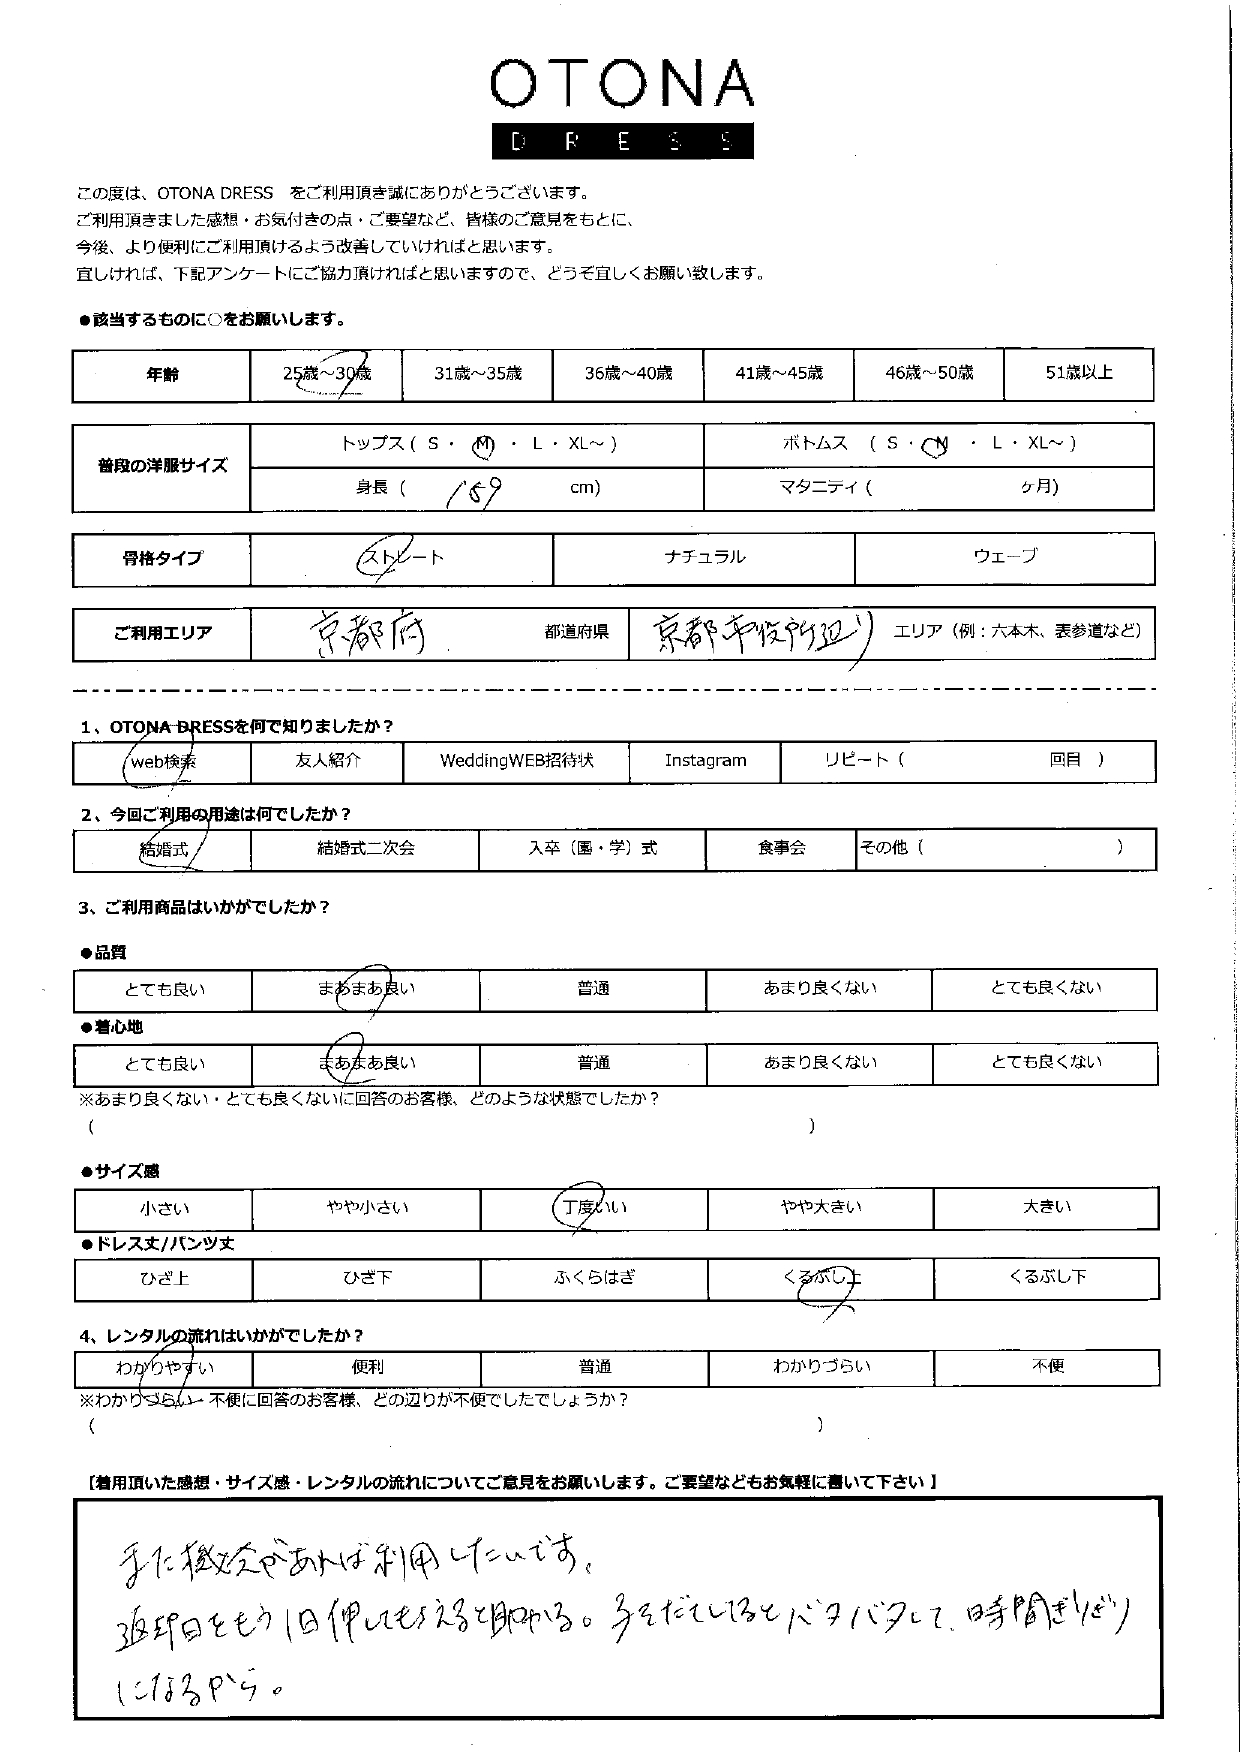 OTONA
DRESS
この度は、OTONA DRESS をご利用頂き誠にありがとうございます。
ご利用頂きました感想・お気付きの点・ご要望など、皆様のご意見をもとに、
今後、より便利にご利用頂けるよう改善していければと思います。
宜しければ、下記アンケートにご協力頂ければと思いますので、どうぞ宜しくお願い致します。
●該当するものに○をお願いします。
年齢 25歳～30歳 31歳～35歳 36歳～40歳 41歳～45歳 46歳～50歳 51歳以上
普段の洋服サイズ
トップス ( S ・ M ・ L ・ XL～ ) ボトムス ( S ・ M ・ L ・ XL～ )
身長 ( 159 cm) マタニティ ( ヶ月)
骨格タイプ ストレート ナチュラル ウェーブ
ご利用エリア 京都府 都道府県 京都市役所辺り エリア（例：六本木、表参道など）
1、OTONA DRESSを何で知りましたか？
web検索 友人紹介 WeddingWEB招待状 Instagram リピート ( 回目 )
2、今回ご利用の用途は何でしたか？
結婚式 結婚式二次会 入卒（園・学）式 食事会 その他 ( )
3、ご利用商品はいかがでしたか？
●品質
とても良い まあまあ良い 普通 あまり良くない とても良くない
●着心地
とても良い まあまあ良い 普通 あまり良くない とても良くない
※あまり良くない・とても良くないに回答のお客様、どのような状態でしたか？
( )
●サイズ感
小さい やや小さい 丁度いい やや大きい 大きい
●ドレス丈/パンツ丈
ひざ上 ひざ下 ふくらはぎ くるぶし上 くるぶし下
4、レンタルの流れはいかがでしたか？
わかりやすい 便利 普通 わかりづらい 不便
※わかりづらい・不便に回答のお客様、どの辺りが不便でしたでしょうか？
( )
【着用頂いた感想・サイズ感・レンタルの流れについてご意見をお願いします。ご要望などもお気軽に書いて下さい】
また機会があれば利用したいです。
返却日をもう1日伸してもらえると助かる。子そだてしてるとバタバタして、時間ぎりぎり
になるから。